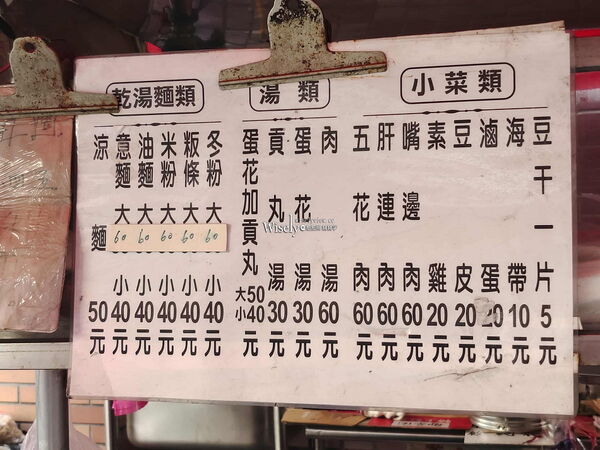 乾湯麵類
冬粉 大60 小40元
粄條 大60 小40元
米粉 大60 小40元
油麵 大60 小40元
意麵 大60 小40元
涼麵 50元
湯類
肉湯 60元
蛋花湯 30元
貢丸湯 30元
蛋花加貢丸 大50 小40元
小菜類
豆干一片 5元
海帶 10元
滷蛋 20元
豆皮 20元
素雞 20元
嘴邊肉 60元
肝連肉 60元
五花肉 60元